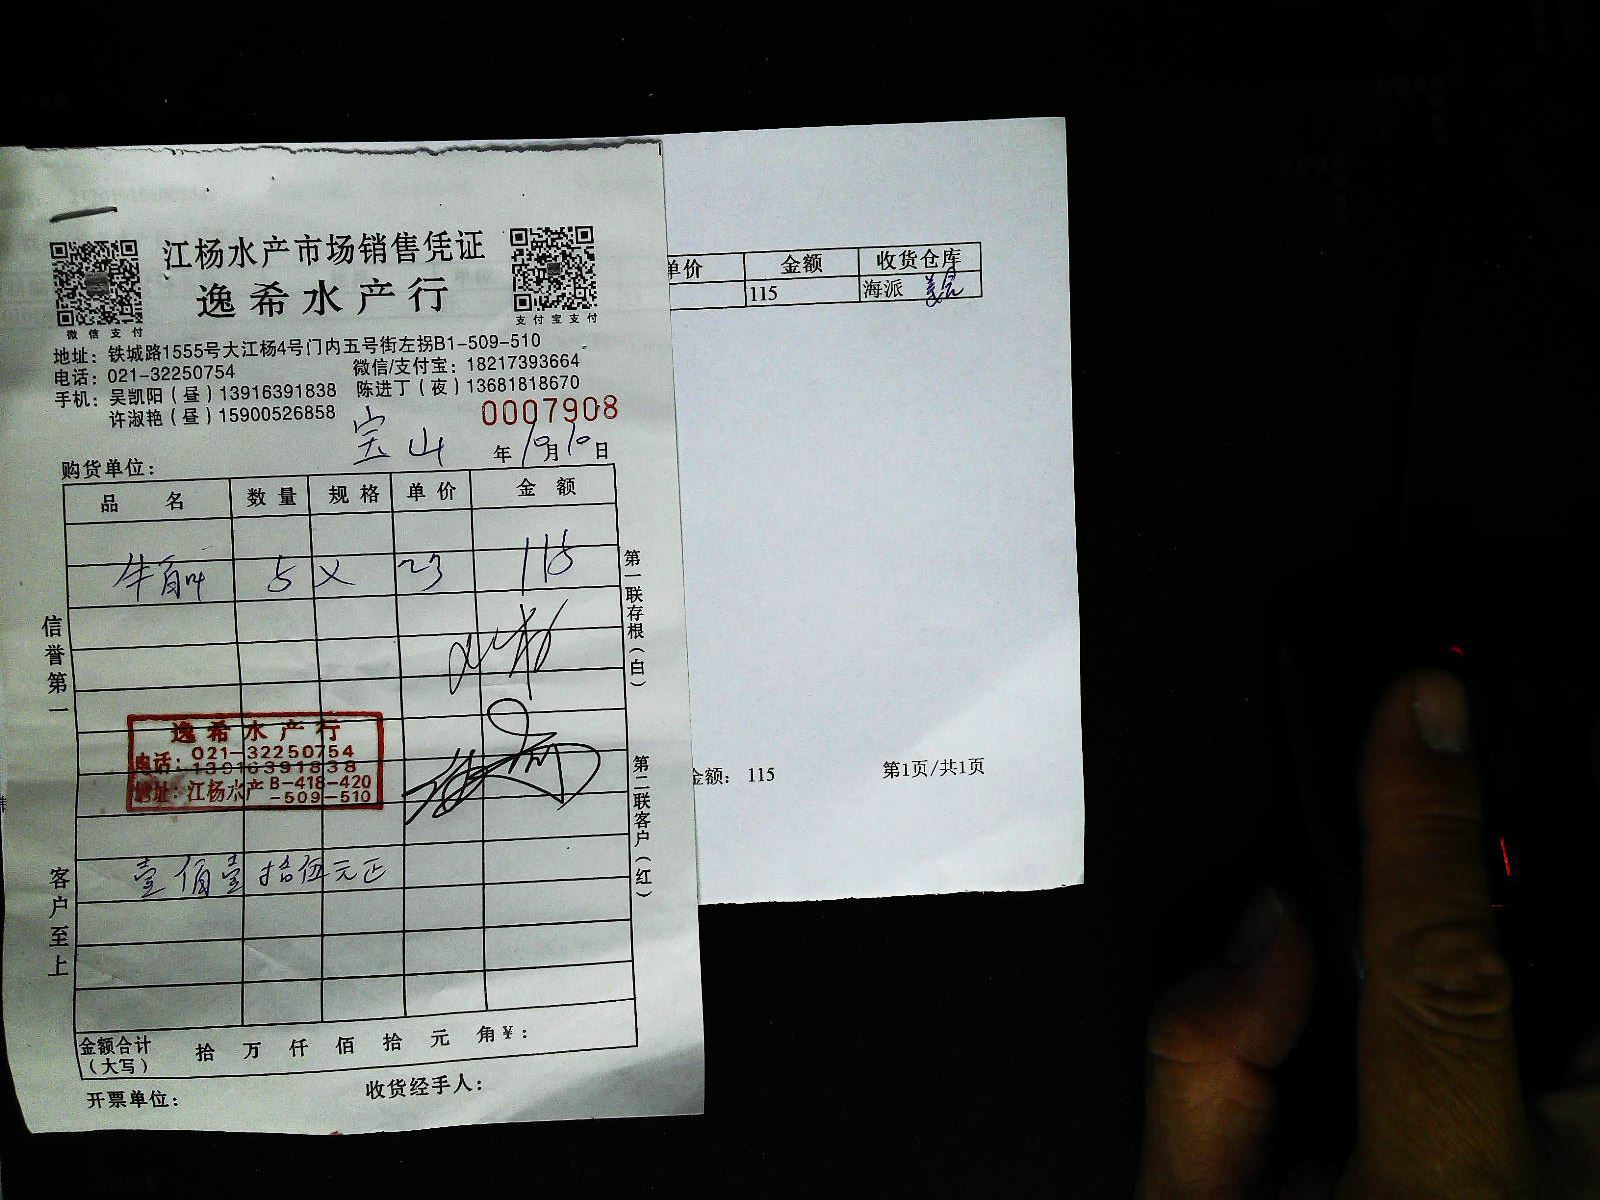 江杨水产市场销售凭证
逸希水产行
微信支付
支付宝支付
地址：铁城路1555号大江杨4号门内五号街左拐B1-509-510
电话：021-32250754 微信/支付宝：18217393664
手机：吴凯阳（昼）13916391838 陈进丁（夜）13681818670
许淑艳（昼）15900526858
0007908
宝山
年10月10日
购货单位：
品名 数量 规格 单价 金额
牛 5 × 23 115
信誉第一
客户至上
第一联存根（白）
第二联客户（红）
逸希水产行
电话：021-32250754
13916391838
地址：江杨水产B-418-420
-509-510
壹佰壹拾伍元正
金额合计（大写） 拾 万 仟 佰 拾 元 角 ¥：
开票单位： 收货经手人：
单价 金额 收货仓库
115 海派
金额： 115 第1页/共1页